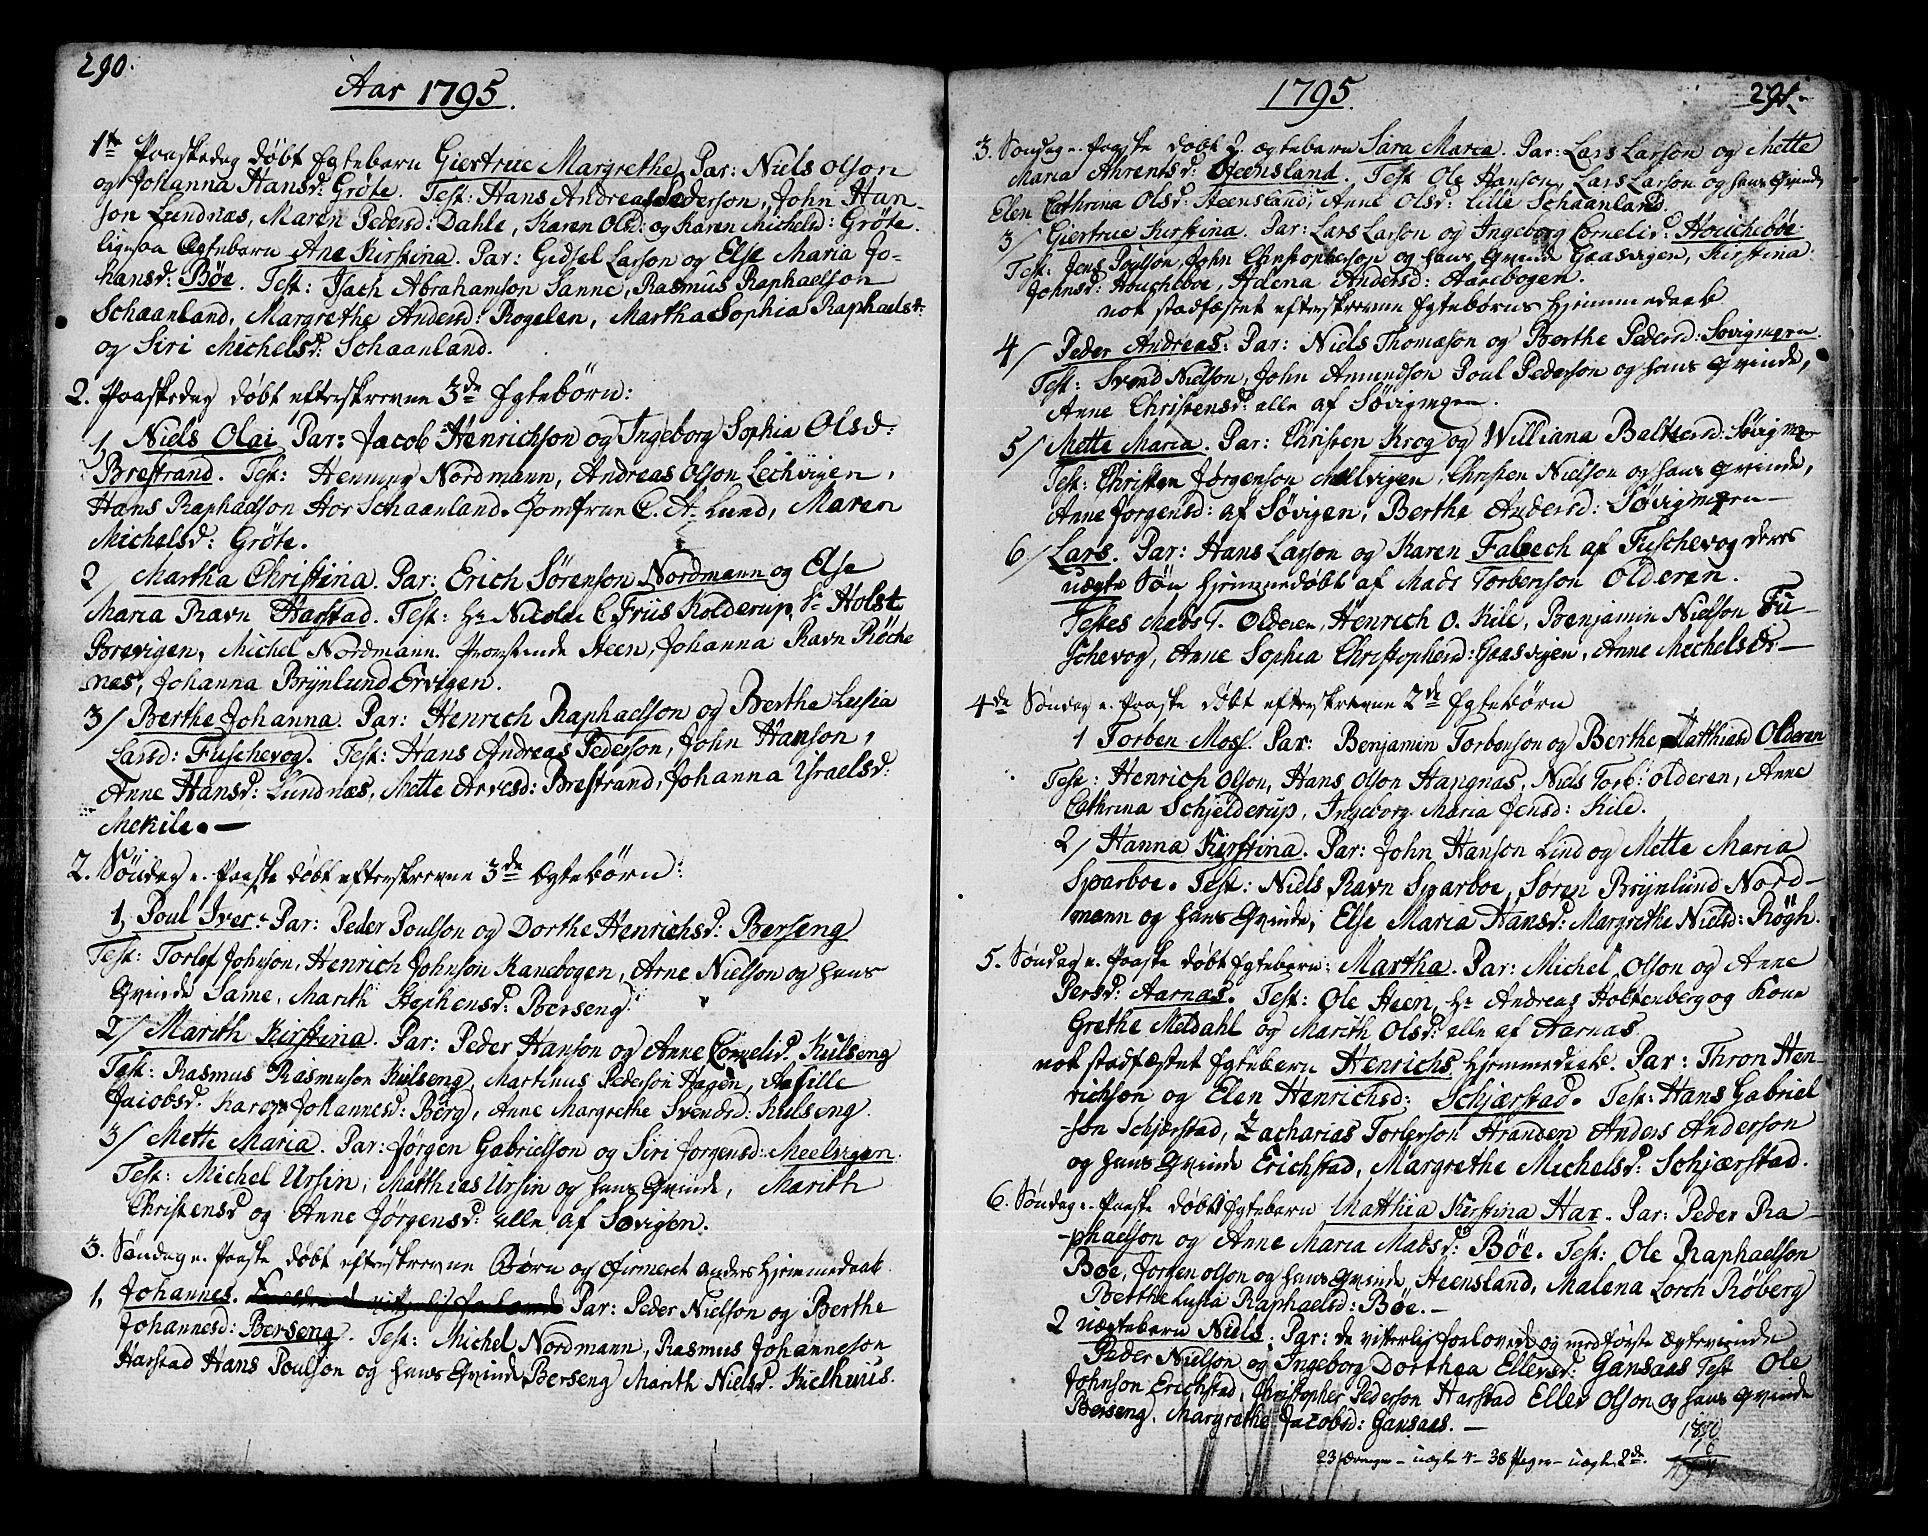 290.
Aar 1795.
1te Paaskedag døbt Egtebarn Giertrue Margrethe Par: Niels Olson
og Johanna Hansd: Grøte. Test: Hans Andreas Pederson, John Han-
son Lundnæs, Maren Pedersd: Dahle, Karen Olsd: og Karen Michelsd: Grøte.
ligesaa Ægtebarn Ane Kirstina. Par: Gidsel Larson og Else Maria Jo-
hansd: Bøe. Test: Isach Abrahamson Sanne, Rasmus Raphaelson
Schaanland, Margrethe Andersd: Rogelen, Martha Sophia Raphaelsd:
og Siri Michelsd: Schaanland.
2. Paaskedag døbt efterskrevne 3de Egtebörn:
1, Niels Olai Par: Jacob Henrichson og Ingeborg Sophia Olsd:
Brestrand. Test: Henning Nordmann, Andreas Olson Lechvigen,
Hans Raphaelson Stor Schaanland. Jomfrue C. A. Lund, Maren
Michelsd: Grøte.
2 Martha Christina. Par: Erich Sørenson Nordmann og Else
Maria Ravn Harstad. Test: Hr Nicolai C Friis Kolderup, Sr Holst
Brevigen, Michel Nordmann. Provstinde Steen, Johanna Ravn Røche
næs, Johanna Brÿnlund Ervigen.
3/ Berthe Johanna. Par: Henrich Raphaelson og Berthe Lusia
Larsd: Fuschevog. Test: Hans Andreas Pederson, John Hanson,
Anne Hansd: Lundnæs, Mette Arvesd: Brestrand, Johanna Ysraelsd:
Mekile. —
2. Søndag e. Paaske døbt efterskrevne 3de Ægtebörn:
1, Poul Iver. Par: Peder Poulson og Dorthe Henrichsd: Berseng
Test: Torlef Johnson, Henrich Johnson Kanebogen, Arne Nielson og hans
Qvinde Same, Marith Stephensd: Berseng.
2/ Marith Kirstina. Par: Peder Hanson og Anne Cornelisd: Kulseng
Test: Rasmus Rasmuson Kulseng, Martinus Pederson Hagen, Aasille
Jacobsd: Karen Johannesd: Berg, Anne Margrethe Svendsd: Kulseng.
3/ Mette Maria. Par: Jørgen Gabrielson og Siri Jørgensd: Meelvigen.
Test: Michel Ursin, Matthias Ursin og hans Qvinde, Marith
Christensd og Anne Jørgensd: alle af Søvigen.
3. Søndag e. Paaske døbt efterskrevne Børn og cfirmeret anders Hjemmedaab.
1, Johannes. Par: Peder Nielson og Berthe
Johannesd: Berseng. Test: Michel Nordmann, Rasmus Johanneson
Harstad Hans Poulson og hans Qvinde Berseng Marith Nielsd. Kielhuus.
1795.
291.
3. Søndag e. Paaske døbt 2. ægtebarn Sara Maria. Par: Lars Larson og Mette
Maria Ahrentsd: Steensland. Test Ole Hanson, Lars Larson og hans Qvinde
Elen Cathrina Olsd: Steensland, Anne Olsd: Lille Schaanland.
3/ Giertrue Kirstina. Par: Lars Larson og Ingeborg Cornelisd: Houcheböe
Test: Jens Poulson, John Christopherson og hans Qvinde Gaasvigen, Kirstina
Johnsd: Houcheboe, Adena Andersd: Aarebogen.
nok stadfæstet efterskrevne Egtebörns Hjemmedaab
4/ Peder Andreas: Par: Niels Thomæson og Berthe Pedersd: Søvigmyren.
Test: Svend Nielson, John Amundson Poul Pederson og hans Qvinde,
Anne Christensd: alle af Søvigmyren.
5/ Mette Maria. Par: Christen Krog og Williana Baltsersd: Søvigmÿ
Test: Christen Jørgenson Melvigen, Christen Nielson og hans Qvinde,
Anne Jørgensd: af Søvigen, Berthe Andersd: Søvigmyren—
6/ Lars. Par: Hans Larson og Karen Falech af Fuschevog deres
uægte Søn hjemmedøbt af Mads Torbenson Olderen.
Testes Mads T. Olderen, Henrich O. Kile, Benjamin Nielson Fu-
schevog, Anne Sophia Christophersd: Gaasvigen, Anne Michelsdr —
4de Søndag e. Paaske døbt efterskrevne 2de Egtebörn
1 Torben Moss. Par: Benjamin Torbenson og Berthe Matthiasd Olderen
Test: Henrich Olson, Hans Olson Hangnæs, Niels Torb: olderen, Anne
Cathrina Schjelderup, Ingeborg Maria Jensd: Kile.
2/ Hanna Kirstina. Par: John Hanson Lind og Mette Maria
Sparboe. Test: Niels Ravn Sparboe, Søren Brÿnlund Nord-
mann og hans Qvinde, Else Maria Hansd: Margrethe Nielsd: Røgh.
5. Søndag e. Paaske døbt Egtebarn: Martha. Par: Michel Olson og Anne
Persd: Aarnæs. Test: Ole Steen, Hr Andreas Holtenberg og Kone
Grethe Meldahl og Marith Olsd: alle af Aarnæs
nok stadfæstet Egtebarn Henrichs Hjemmedaab. Par: Thron Hen-
richson og Elen Henrichsd: Schjærstad. Test: Hans Gabriel
son Schjærstad, Zacharias Torlerson Stranden Anders Anderson
og hans Qvinde Erichstad, Margrethe Michelsd: Schjærstad.
6. Søndag e. Paaske døbt Egtebarn Matthia Kirstina Har. Par: Peder Ra-
phaelson og Anne Maria Madsd: Bøe. Test: Ole Raphaelson
Bøe, Jørgen olson og hans Qvinde, Steensland, Malena Lorch Røberg
Berthe Lusia Raphaelsd: Bøe. —
2 uægtebarn Niels. Par: de vitterlig forlovede og med første Ægtevinde
Peder Nielson og Ingeborg Dorthea Ellevsd: Gansaas Test Ole
Johnson Erichstad, Christopher Pederson Harstad Ellev Olson og hans Qvinde
Berseng. Margrethe Jacobsd: Gansaas. —
23 Drenge — uægte 4 — 38 Piger — uægte 2de.